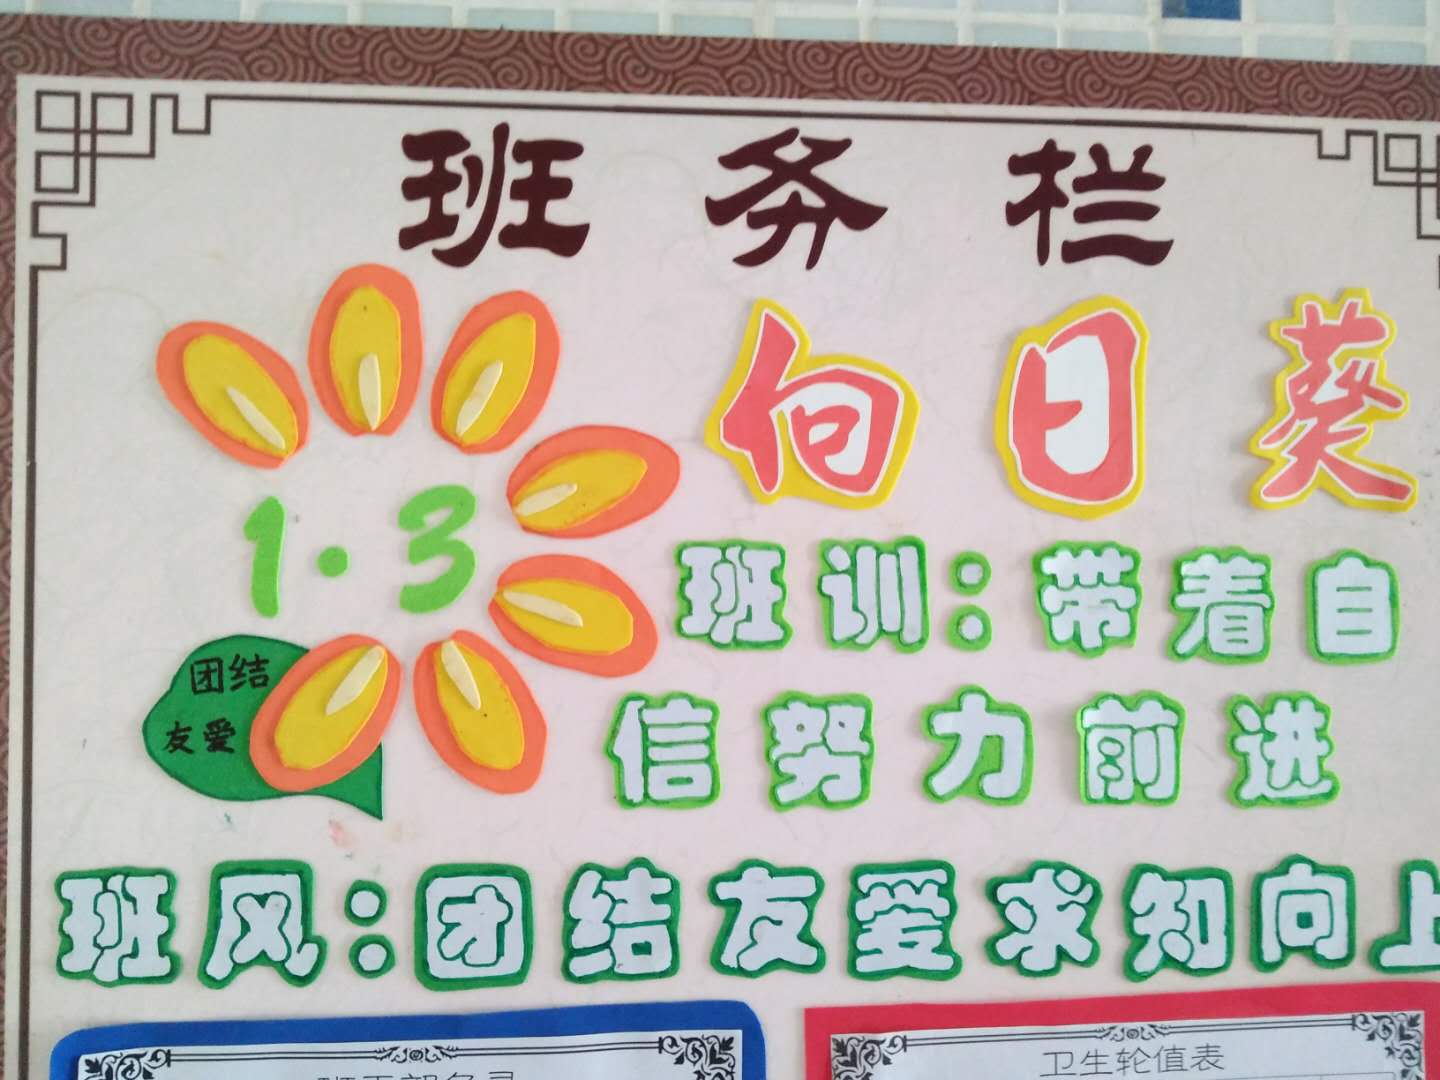 班务栏
向日葵
1·3
班训：带着自
信努力前进
团结
友爱
班风：团结友爱求知向上
卫生轮值表